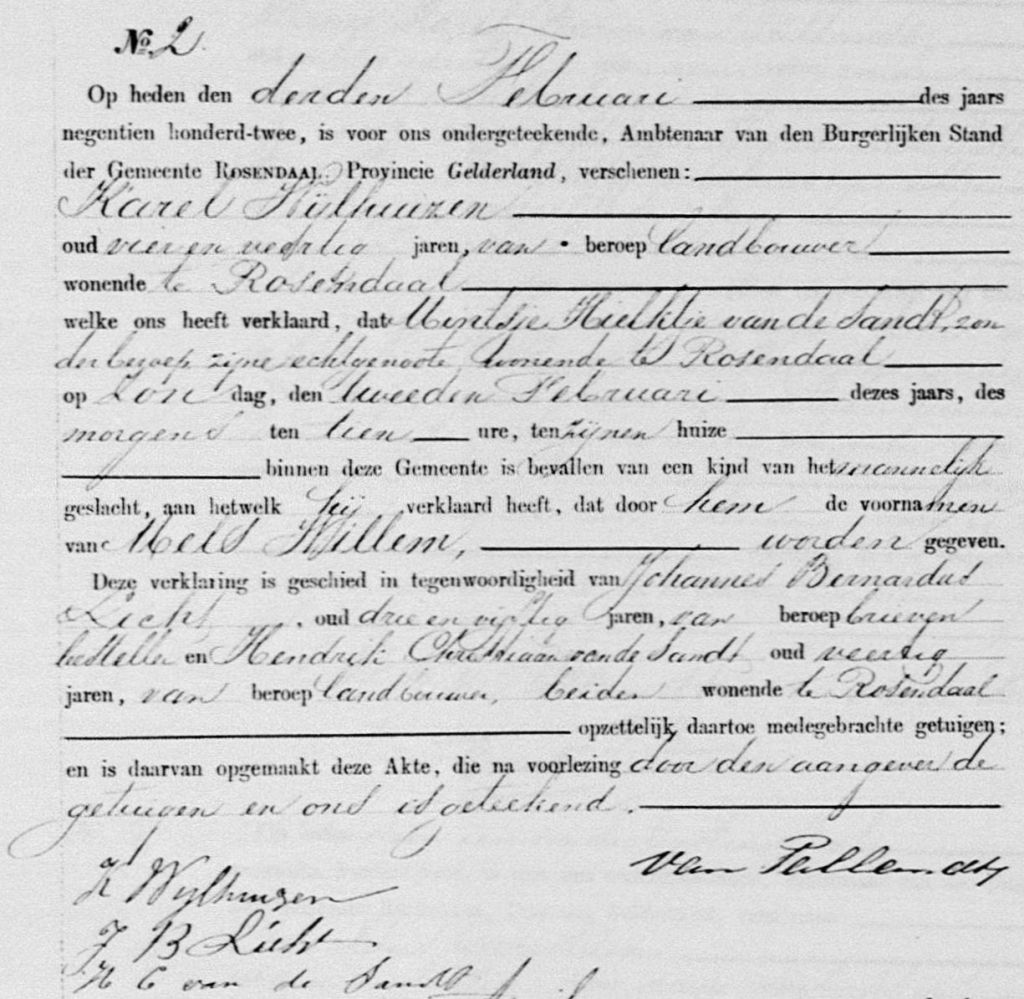 No. 2.
Op heden den derden Februari des jaars
negentien honderd-twee, is voor ons ondergeteekende, Ambtenaar van den Burgerlijken Stand
der Gemeente ROSENDAAL, Provincie Gelderland, verschenen:
Karel Wijlhuizen
oud vier en veertig jaren, van beroep landbouwer
wonende te Rosendaal
welke ons heeft verklaard, dat Mintje Hielktje van de Sandt, zon
der beroep zijne echtgenoote, wonende te Rosendaal
op Zon dag, den tweeden Februari dezes jaars, des
morgens ten tien ure, ten zijnen huize
binnen deze Gemeente is bevallen van een kind van het mannelijk
geslacht, aan hetwelk hij verklaard heeft, dat door hem de voornamen
van Mels Willem, worden gegeven.
Deze verklaring is geschied in tegenwoordigheid van Johannes Bernardus
Licht, oud drie en vijftig jaren, van beroep brieven
besteller en Hendrik Christiaan van de Sandt oud veertig
jaren, van beroep landbouwer, beiden wonende te Rosendaal
opzettelijk daartoe medegebrachte getuigen;
en is daarvan opgemaakt deze Akte, die na voorlezing door den aangever de
getuigen en ons is geteekend.
van Pallandt
K Wylhuizen
J B Licht
H C van de Sandt